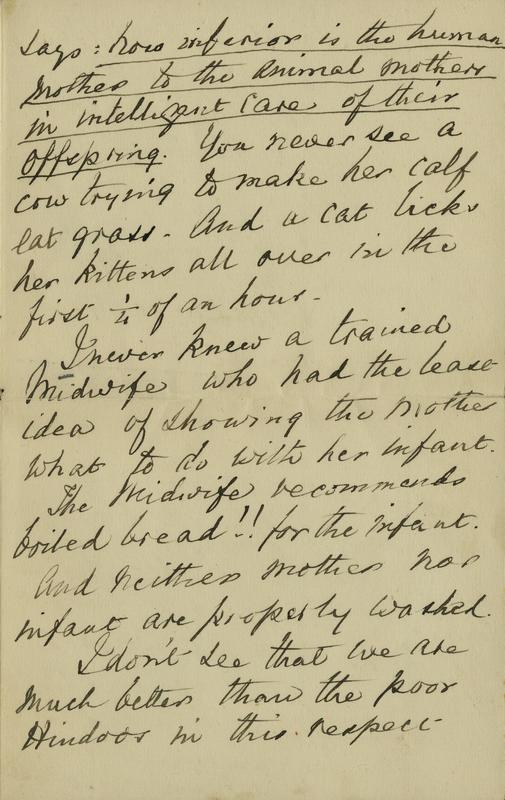 says: how inferior is the human
Mother to the animal mothers
in intelligent care of their
offspring. You never see a
cow trying to make her calf
eat grass. And a cat licks
her kittens all over in the
first ¼ of an hour.
I never knew a trained
Midwife who had the least
idea of showing the Mother
what to do with her infant.
The Midwife recommends
boiled bread!! for the infant.
And neither mother nor
infant are properly washed.
I don't see that we are
much better than the poor
Hindoos in this respect